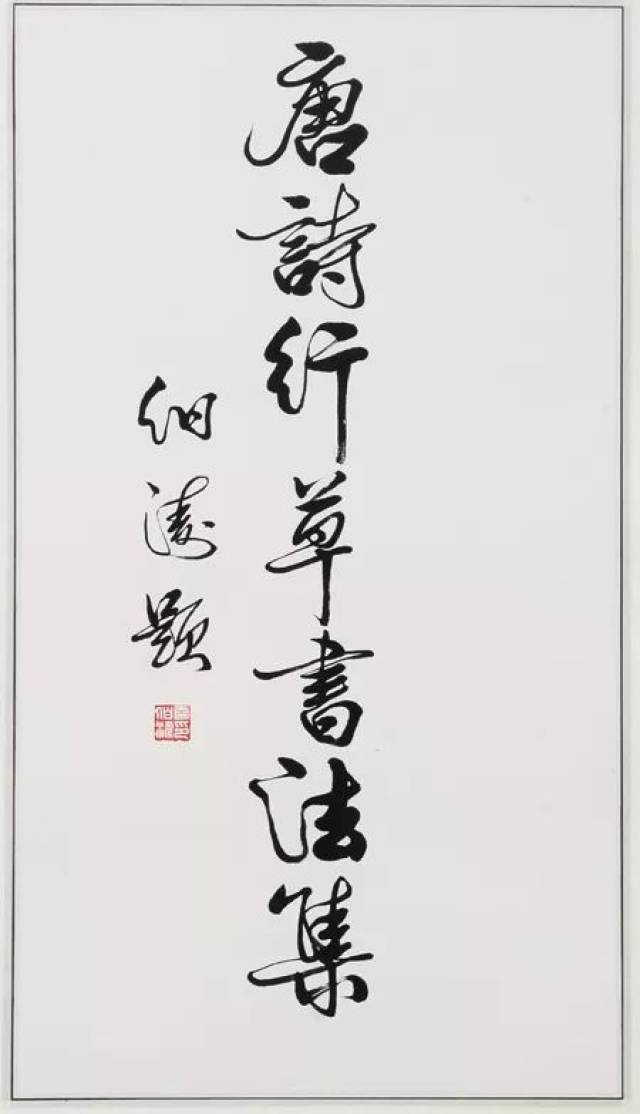 唐詩行草書法集
伯濤題